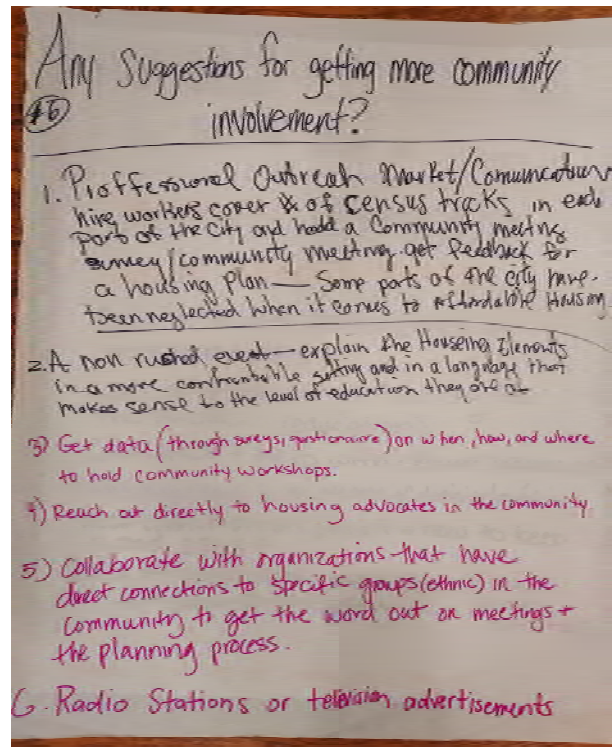 Any Suggestions for getting more community
#6 involvement?
1. Proffessional Outreach Market/Comunication
hire workers cover of census tracks in each
part of the City and hold a Community meeting
survey/community meeting. get feedback for
a housing Plan — Some parts of the city have
been neglected when it comes to Affordable Housing
2. A non rushed event — explain the Houseing Elements
in a more comfrontable setting and in a language that
makes sense to the level of education they are at
3) Get data (through sureys, questionaire) on when, how, and where
to hold community workshops.
4) Reach out directly to housing advocates in the community
5) Collaborate with organizations that have
direct connections to specific groups (ethnic) in the
community to get the word out on meetings +
the planning process.
6. Radio Stations or television advertisements